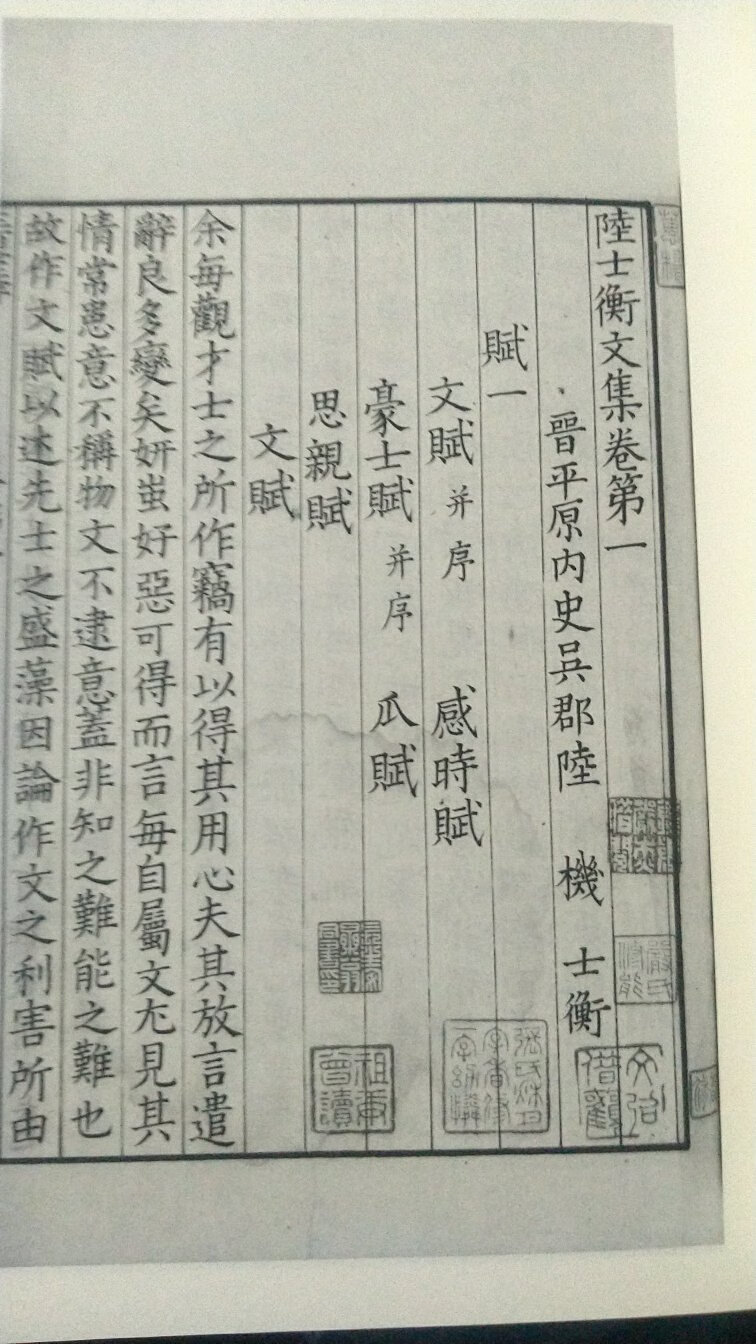 陸士衡文集卷第一
晉平原内史吳郡陸　機　士衡
賦一
文賦并序　感時賦
豪士賦并序　瓜賦
思親賦
文賦
余每觀才士之所作竊有以得其用心夫其放言遣
辭良多變矣妍蚩好惡可得而言每自屬文尤見其
情常患意不稱物文不逮意蓋非知之難能之難也
故作文賦以述先士之盛藻因論作文之利害所由